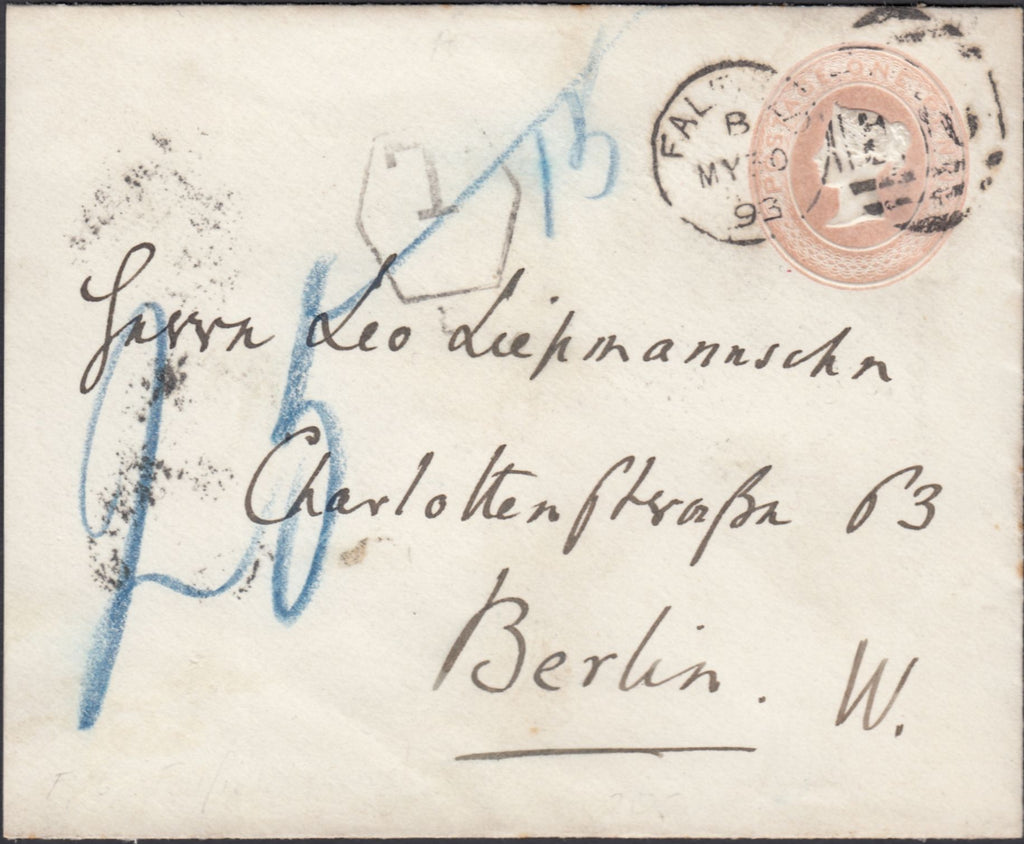 FAL
B
MY 93
ONE
T
13
25
Herrn Leo Liepmannsohn
Charlottenstraße 63
Berlin. W.